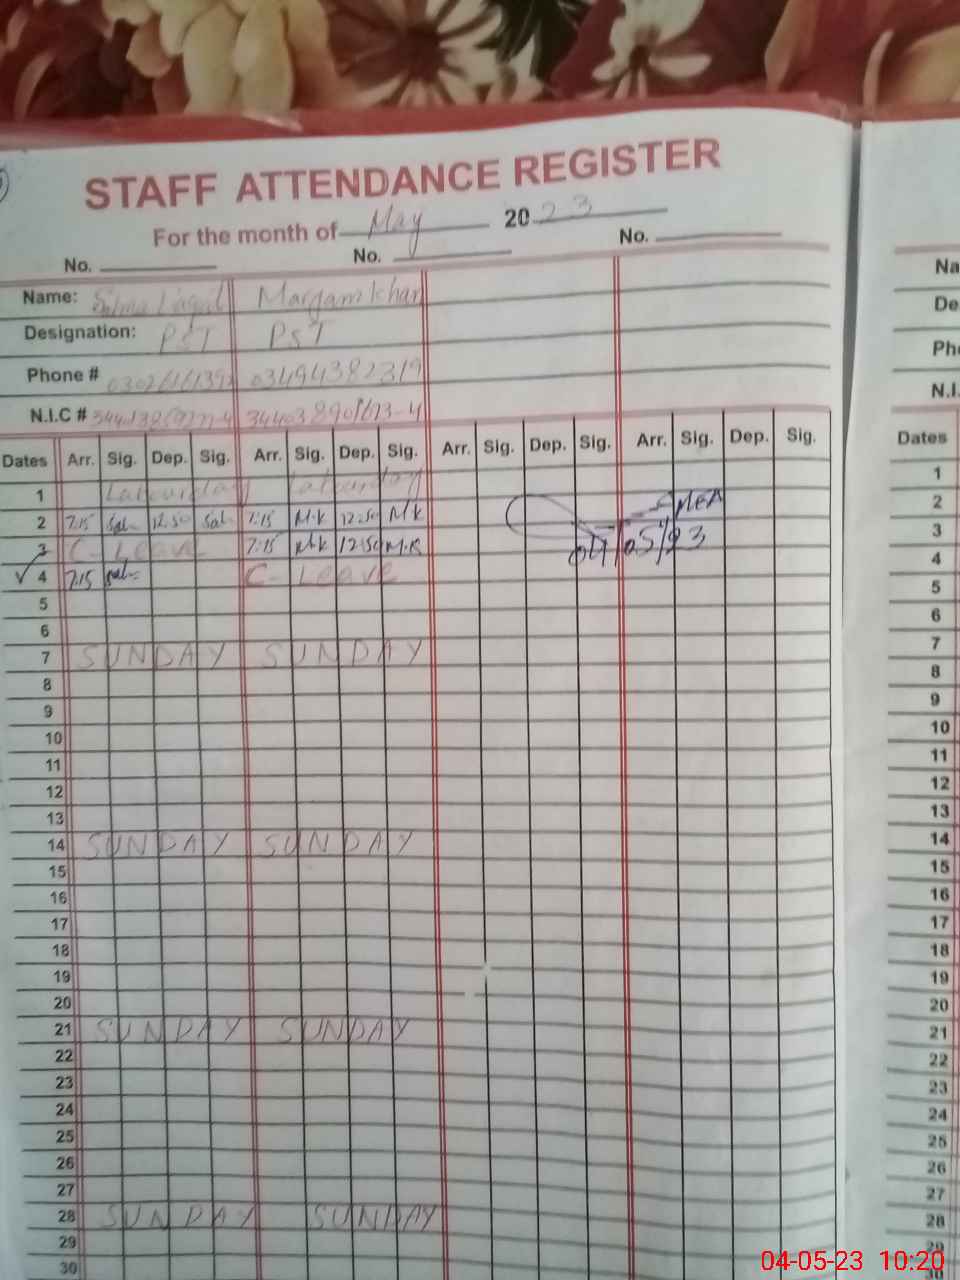 STAFF ATTENDANCE REGISTER
For the month of May 2023
No. No. No.
Name: Maryam khan
Designation: PST PST
Phone # 03494382319
N.I.C #
Dates Arr. Sig. Dep. Sig. Arr. Sig. Dep. Sig. Arr. Sig. Dep. Sig. Arr. Sig. Dep. Sig.
1 Labourday Labourday
2 7:15 Sal 12:50 Sal 7:15 M.K 12:50 M.K MEA
3 C- Leave 7:15 M.K 12:50 M.K 04/05/23
4 7:15 Sal C- Leave
5
6
7 SUNDAY SUNDAY
8
9
10
11
12
13
14 SUNDAY SUNDAY
15
16
17
18
19
20
21 SUNDAY SUNDAY
22
23
24
25
26
27
28 SUNDAY SUNDAY
29
30
Na
De
Ph
N.I.
Dates
1
2
3
4
5
6
7
8
9
10
11
12
13
14
15
16
17
18
19
20
21
22
23
24
25
26
27
28
29
30
04-05-23 10:20